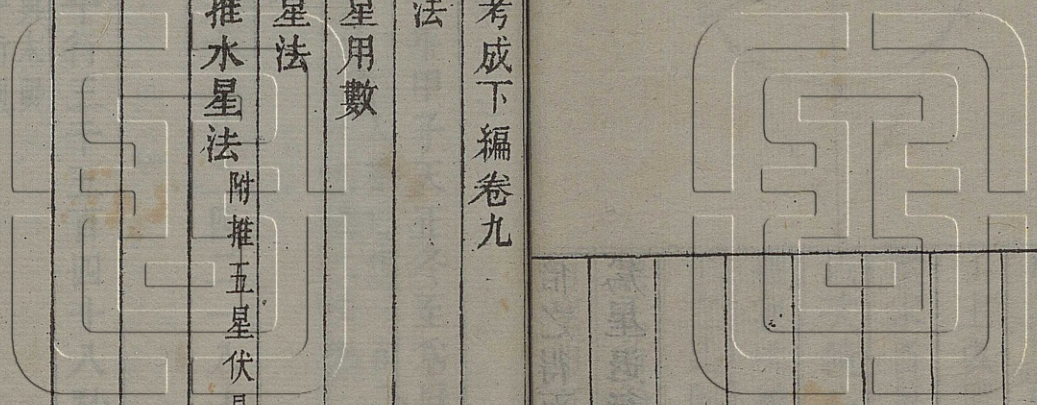 考成下編卷九
法
星用數
星法
推水星法附推五星伏